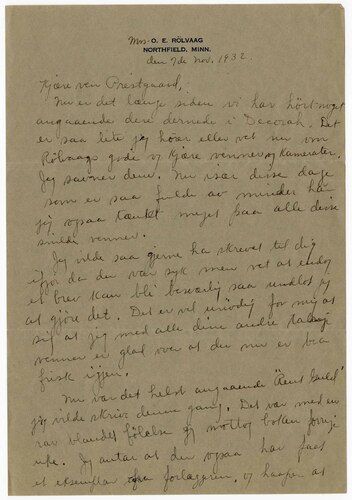 Mrs. O. E. RÖLVAAG
NORTHFIELD, MINN.
den 7de Nov. 1932.
Kjære ven Prestgaard,
Nu er det længe siden vi har hört noget
angaaende dere dernede i Decorah. Det
er saa lite jeg hörer eller vet nu om
Rölvaags gode og kjære venner og kamerater.
Jeg savner dem. Nu især disse dage
som er saa fulde av minder har
jeg ogsaa tænkt meget paa alle disse
snilde venner.
Jeg vilde saa gjerne ha skrevet til dig
ifjor da den var syk men vet at endog
et brev kan bli besværlig saa undlot jeg
at gjöre det. Det er vel unödig for mig at
si at jeg med alle dine andre
venner er glad over at du nu er bra
frisk igjen.
Nu var det helst angaaende "Rent Guld"
jeg vilde skrive denne gang. Det var med en
rar blandet fölelse jeg mottog boken forrige
uke. Jeg antar at den ogsaa har faat
et eksemplar fra forlæggeren, og haaper at